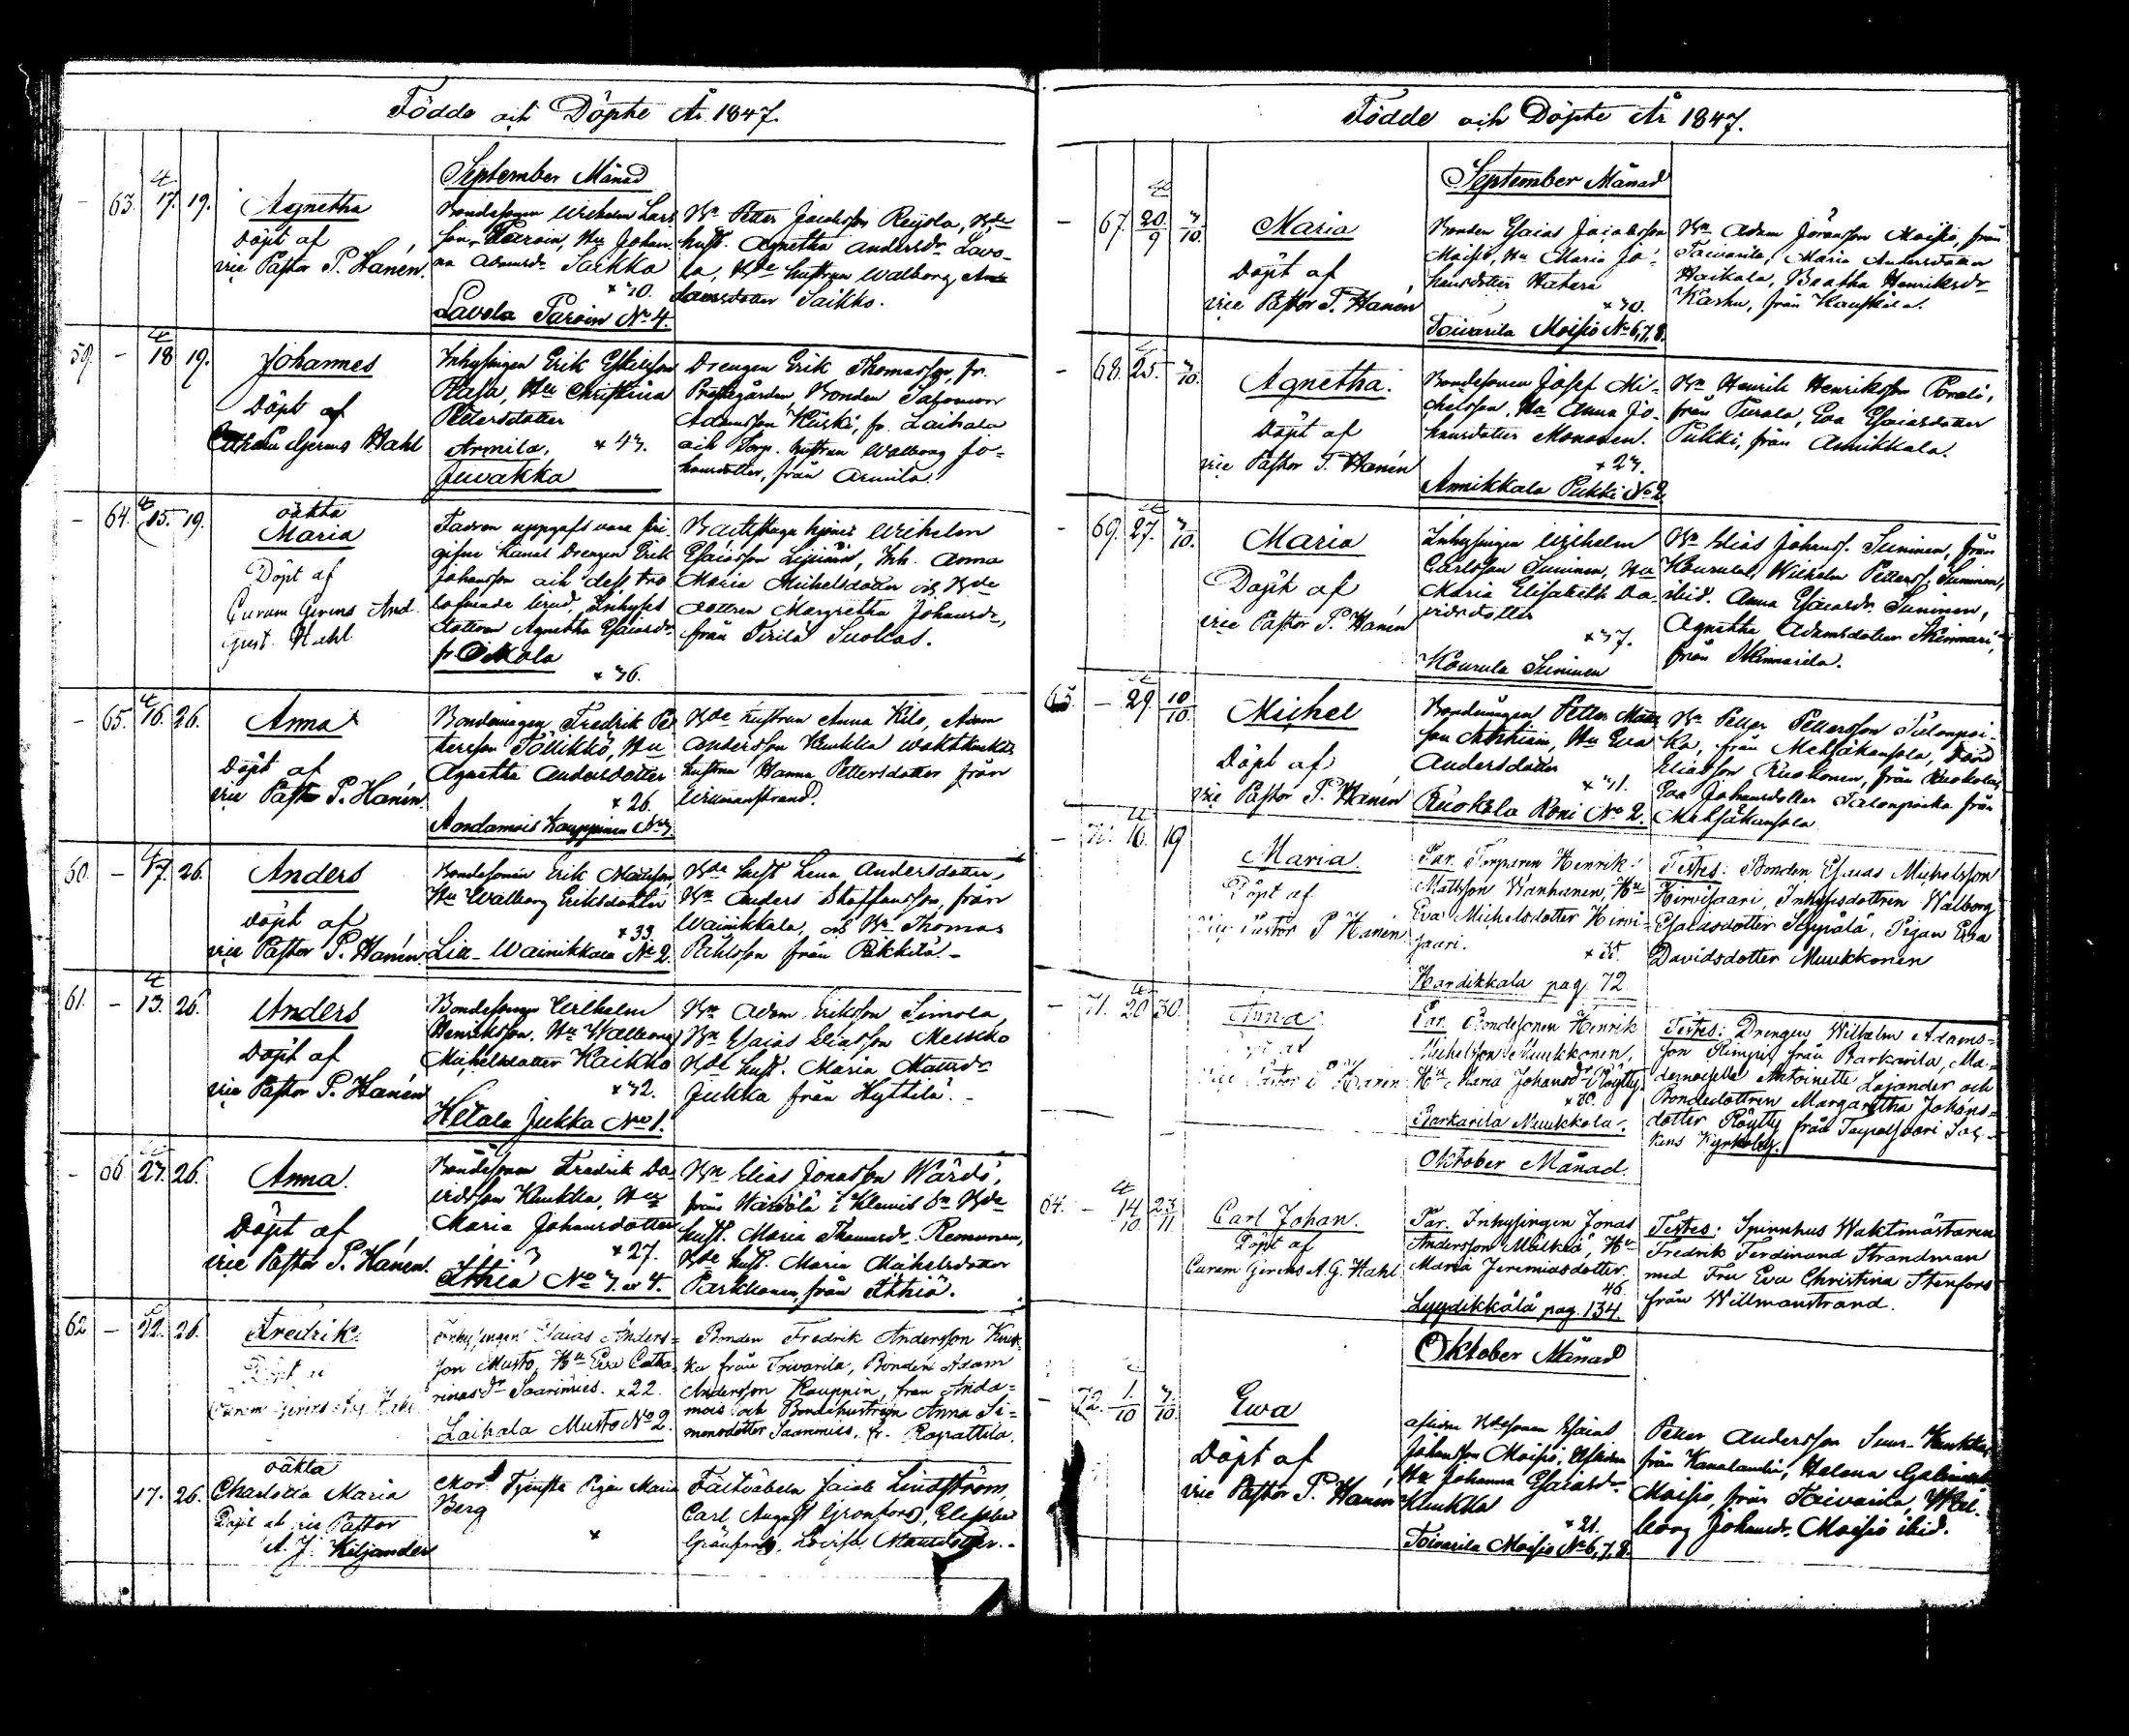 Födde och Döpte År 1847.
September Månad
63. 17. 19.
Agnetha
Döpt af
vice Pastor P. Hanén.
Bondesonen Wilhelm Lars
son Paroin, Hu Johan-
na Adamsdr Saikko
x 30.
Lavola Paroin No 4.
Bn Petter Jacobsson Reijola, Bde
hust. Agnetha Andersdr Lavo-
la, Bde hustrun Walborg
Larsdotter Saikko.
59. – 18 19.
Johannes
Döpt af
Gerens Hahl
Inhysingen Erik
Hu Christina
Pettersdotter
Armila, x 43.
Juvakka
Drengen Erik Thomasson, fr.
Prestgården, Bonden Salomon
Adamsson Kuski, fr. Laihala
och Torp. hustrun Walborg Jo-
hansdotter, från Armila.
– 64. 15. 19.
oäkta
Maria
Döpt af
Curam Gerens And.
Gust. Hahl
Fadren uppgafs vara fri-
gifne Drengen Erik
Johansson och dess tro
lofvade brud, Inhyses
dottren Agnetha Esaiasdr
fr
x 36.
hjonet Wilhelm
Esaiasson Inh. Anna
Maria Michelsdotter och Bde
dottren Margretha Johansdr,
från Tirilä Suokas.
– 65. 16. 26.
Anna
Döpt af
vice Pastor P. Hanén.
Bondemågen Fredrik Pet
tersson Töllikkö, Hu
Agnetha Andersdotter
x 26.
Kauppinen No 3.
Bde hustrun Anna Kilo, Adam
Andersson Kuukka
hustrun Hanna Pettersdotter från
Willmanstrand.
60. – 17. 26.
Anders
Döpt af
vice Pastor P. Hanén.
Bondesonen Erik Matsson,
Hu Walborg Eriksdotter
x 33.
Wainikkala No 2.
Bde hust Lena Andersdotter,
Bn Anders Staffansson, från
Wainikkala, och Bn Thomas
från
61. – 13. 26.
Anders
Döpt af
vice Pastor P. Hanén
Bondesonen Wilhelm
Henriksson, Hu Walborg
Michelsdotter Kaikko
x 32.
Jukka No 1.
Bn Adam Eriksson Simola,
Bn Esaias Eliasson
Bde hust. Maria Matsdr
Jukka från Hyttilä.
– 66. 23. 26.
Anna.
Döpt af
vice Pastor P. Hanén.
Bondesonen Fredrik Da
vidsson Kuukka, Hu
Maria Johansdotter
x 27.
No 3. & 4.
Bn Elias Jonasson Wärdi,
från Wärdälä i Klemis Sn Bde
hust. Maria Thomasdr Remunen,
Bde hust. Maria Michelsdotter
Parkkonen, från
62 – 12. 26.
Fredrik.
Döpt af
Curam Gerens A.G. Hahl
Inhysingen Esaias Anders-
son Musto, Hu Eva Catha-
rinasdr Saarimies. x 22.
Laihala Musto No 2.
Bonden Fredrik Andersson Kuuk-
ka från Toivarila, Bonden Adam
Andersson Kauppin, från Anda-
mois och Bondehustrun Anna Si-
monsdotter Saarimies, fr. Rapattila.
17. 26.
oäkta
Charlotta Maria
Döpt af vice Pastor
A. J. Kiljander
Mor: Tjenste Pigan Maria
Berg
x
Fältväbeln Jacob Lindström,
Carl August
Lovisa
Födde och Döpte År 1847.
September Månad
– 67. 20/9 3/10.
Maria
Döpt af
vice Pastor P. Hanén
Bonden Esaias Jacobsson
Moisio, Hu Maria Jo-
hansdotter Hatara
x 30.
Toivarila Moisio No 6, 7, 8.
Bn Adam Jöransson Moisio, från
Toivarila, Maria Andersdotter
Haikala, Beatha Henriksdr
Karhu, från Kauskala.
– 68. 25. 3/10.
Agnetha.
Döpt af
vice Pastor P. Hanén
Bondesonen Josef Mi-
chelsson, Hu Anna Jo-
hansdotter Mononen.
x 23.
Armikkala Pukki No 2
Bn Henrik Henriksson
från Eva Esaiasdotter
Pukki, från Armikkala.
– 69. 27. 3/10.
Maria
Döpt af
vice Pastor P. Hanén
Inhysingen Wilhelm
Carlsson Suninen, Hu
Maria Elisabeth Da-
vidsdotter
x 37.
Kourula Suninen
Bn Elias Johanss. Suninen, från
Kourula, Wilhelm Petterss. Suninen,
ibid. Anna Esaiasdr Suninen,
Agnetha Adamsdotter Skinnari,
från Skinnarila.
65. – 29. 10/10.
Michel
Döpt af
vice Pastor P. Hanén
Bondmågen Petter Mats
son Hu Eva
Andersdotter
x 31.
Ruokola Roni No 2.
Bn Petter Pettersson Talonpoi-
ka, från Metsäkansola, David
Eliasson Ruokonen, från Ruokola,
Eva Johansdotter Talonpoika från
Metsäkansola
– 70. 16. 19
Maria.
Döpt af
Vice Pastor P Hanén
Par. Torparen Henrik
Mattsson Wanhanen, Hu
Eva Michelsdotter Hirvi-
saari.
x 35.
Kardikkala pag. 72.
Testes: Bonden Esaias Michelsson
Hirvisaari, Inhysesdottren Walborg
Esaiasdotter Seppälä, Pigan Eva
Davidsdotter Muukkonen
– 71. 20 30.
Anna.
Döpt af
Vice Pastor P Hanén
Par. Bondesonen Henrik
Michelsson Muukkonen,
Hu Maria Johansdr Röytty
x 30.
Parkarila Muukkola.
Testes: Drengen Wilhelm Adams-
son Rimpi från Parkarila, Ma-
demoiselle Antoinette Lojander och
Bondedottren Margaretha Johans-
dotter Röytty från Taipalsaari Soc-
kens Kyrkoby.
Oktober Månad.
64. – 14/10 23/11.
Carl Johan.
Döpt af
Curam Gerens A. G. Hahl
Par. Inhysingen Jonas
Andersson Mälkiä, Hu
Maria Jeremiasdotter
46.
Lyydikkälä pag. 134.
Testes: Spinnhus Waktmästaren
Fredrik Ferdinand Strandman
med Fru Eva Christina Stenfors
från Willmanstrand.
Oktober Månad
– 72. 1/10 3/10.
Ewa
Döpt af
vice Pastor P. Hanén
aflidne Bdesonen Esaias
Johansson Moisio,
Hu Johanna Esaiasdr
Kuukka
x 21.
Toivarila Moisio No 6, 7, 8.
Petter Andersson Suur-Kuukka
från Helena
Moisio, från Toivarila, Wal-
borg Johansdr. Moisio ibid.